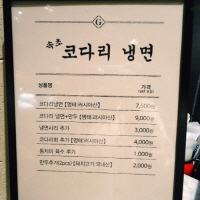 G
속초
코다리 냉면
상품명 가격
코다리냉면 [명태:러시아산] 7,500원
코다리 냉면+만두 [명태:러시아산] 9,000원
냉면사리 추가 3,000원
코다리회 추가 [명태:러시아산] 4,000원
동치미 육수 추가 1,000원
만두추가(2pcs) [돼지고기:국내산] 2,000원